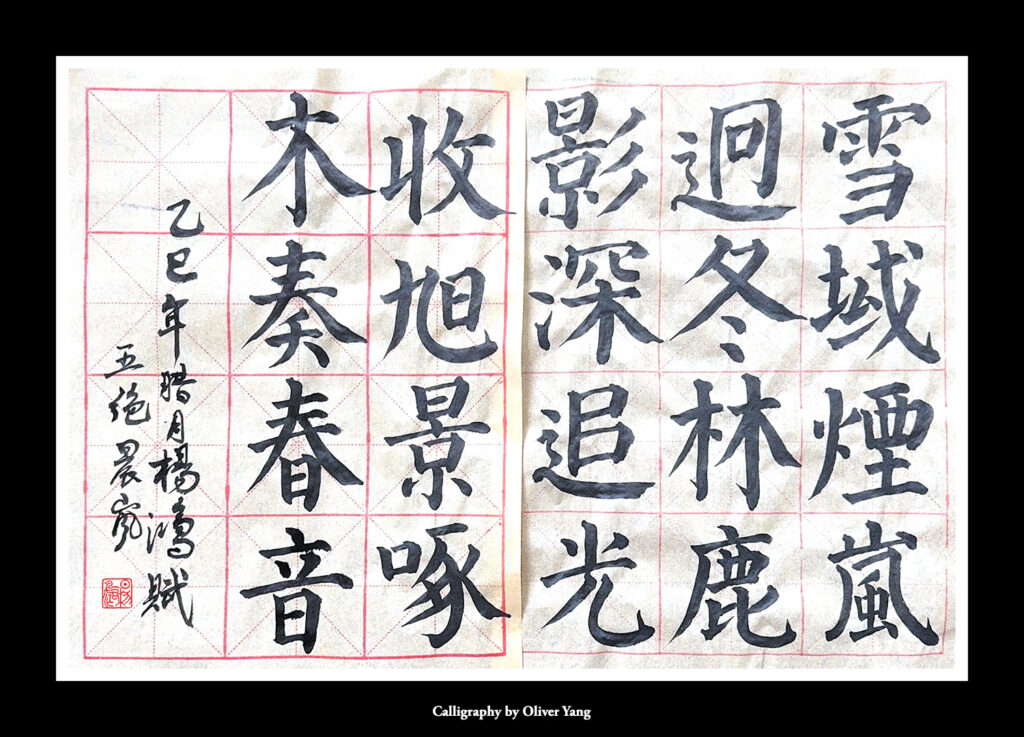 雪域煙嵐
迥冬林鹿
影深追光
收旭景啄
木奏春音
乙巳年腊月楊鴻賦
五絕晨嵐
Calligraphy by Oliver Yang